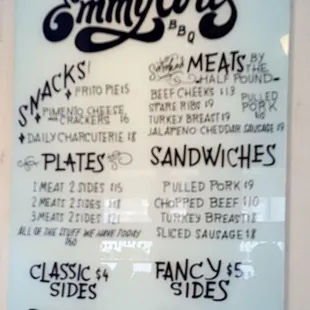 Emmy
BBQ
SNACKS!
+ FRITO PIE 5
+ PIMENTO CHEESE
AND CRACKERS 6
+ DAILY CHARCUTERIE 18
Smoked MEATS BY THE
HALF POUND
BEEF CHEEKS $13
SPARE RIBS $9
TURKEY BREAST $9
JALAPENO CHEDDAR SAUSAGE $9
PULLED
PORK
PLATES
1 MEAT 2 SIDES $15
2 MEATS 2 SIDES $18
3 MEATS 2 SIDES $21
ALL OF THE STUFF WE HAVE TODAY
SANDWICHES
PULLED PORK $9
CHOPPED BEEF $10
TURKEY BREAST $8
SLICED SAUSAGE $8
CLASSIC $4
SIDES
FANCY $5
SIDES